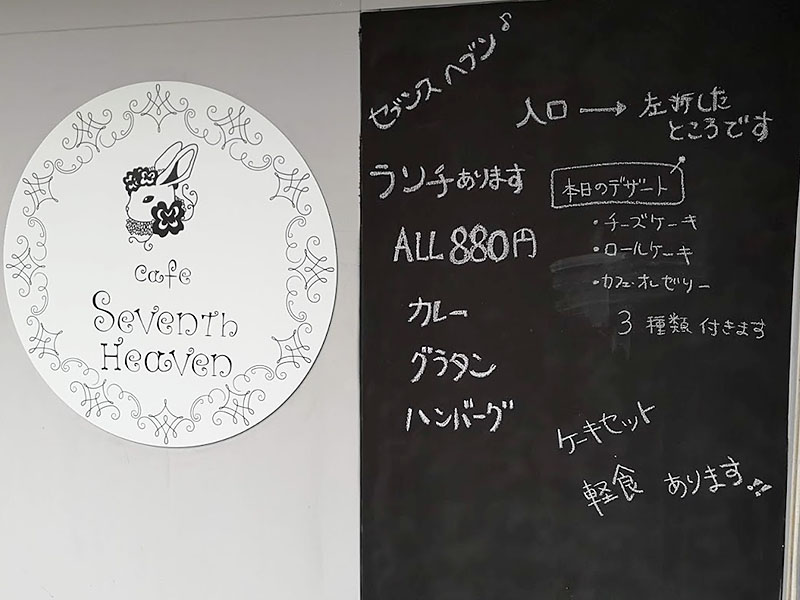 cafe
Seventh
Heaven
セブンス ヘブン♪
入口 → 左折した
ところです
ランチあります
ALL 880円
カレー
グラタン
ハンバーグ
本日のデザート
・チーズケーキ
・ロールケーキ
・カフェ・オレゼリー
3種類 付きます
ケーキセット
軽食 あります